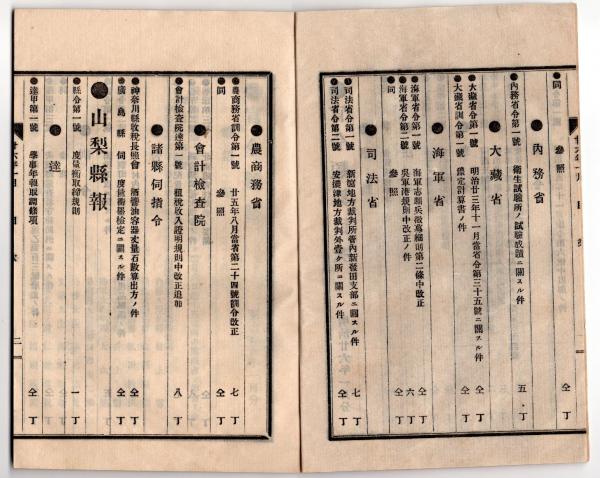 ●同 參照 仝 丁
●內務省
●內務省令第一號 衛生試驗所ノ試驗成蹟ニ關スル件 五丁
●大藏省
●大藏省令第一號 明治廿三年十一月當省令第三十五號ニ關スル件 仝丁
●大藏省訓令第一號 鑑定計算書ノ件 仝丁
●海軍省
●海軍省令第一號 海軍志願兵徵募細則第二條中改正 仝丁
●海軍省令第二號 吳軍港規則中改正ノ件 六丁
●同 參照 仝丁
●司法省
●司法省令第一號 新潟地方裁判所管內新發田支部ニ關スル件 七丁
●司法省令第二號 安濃津地方裁判外壹ケ所ニ關スル件 仝丁
●農商務省
●農商務省訓令第一號 廿五年八月當省第二十四號訓令改正 七丁
●同 參照 仝丁
●會計檢查院
●會計檢查院達第一號 租稅收入證明規則中改正追加 八丁
●諸縣伺指令
●神奈川縣收稅長照會 酒醬油容器丈量石數算出方ノ件 仝丁
●廣島縣伺 度量衡器檢定ニ關スル件 仝丁
●山梨縣報
●縣令第一號 度量衡取締規則 一丁
●達
●達甲第一號 學事年報取調條項 仝丁
二